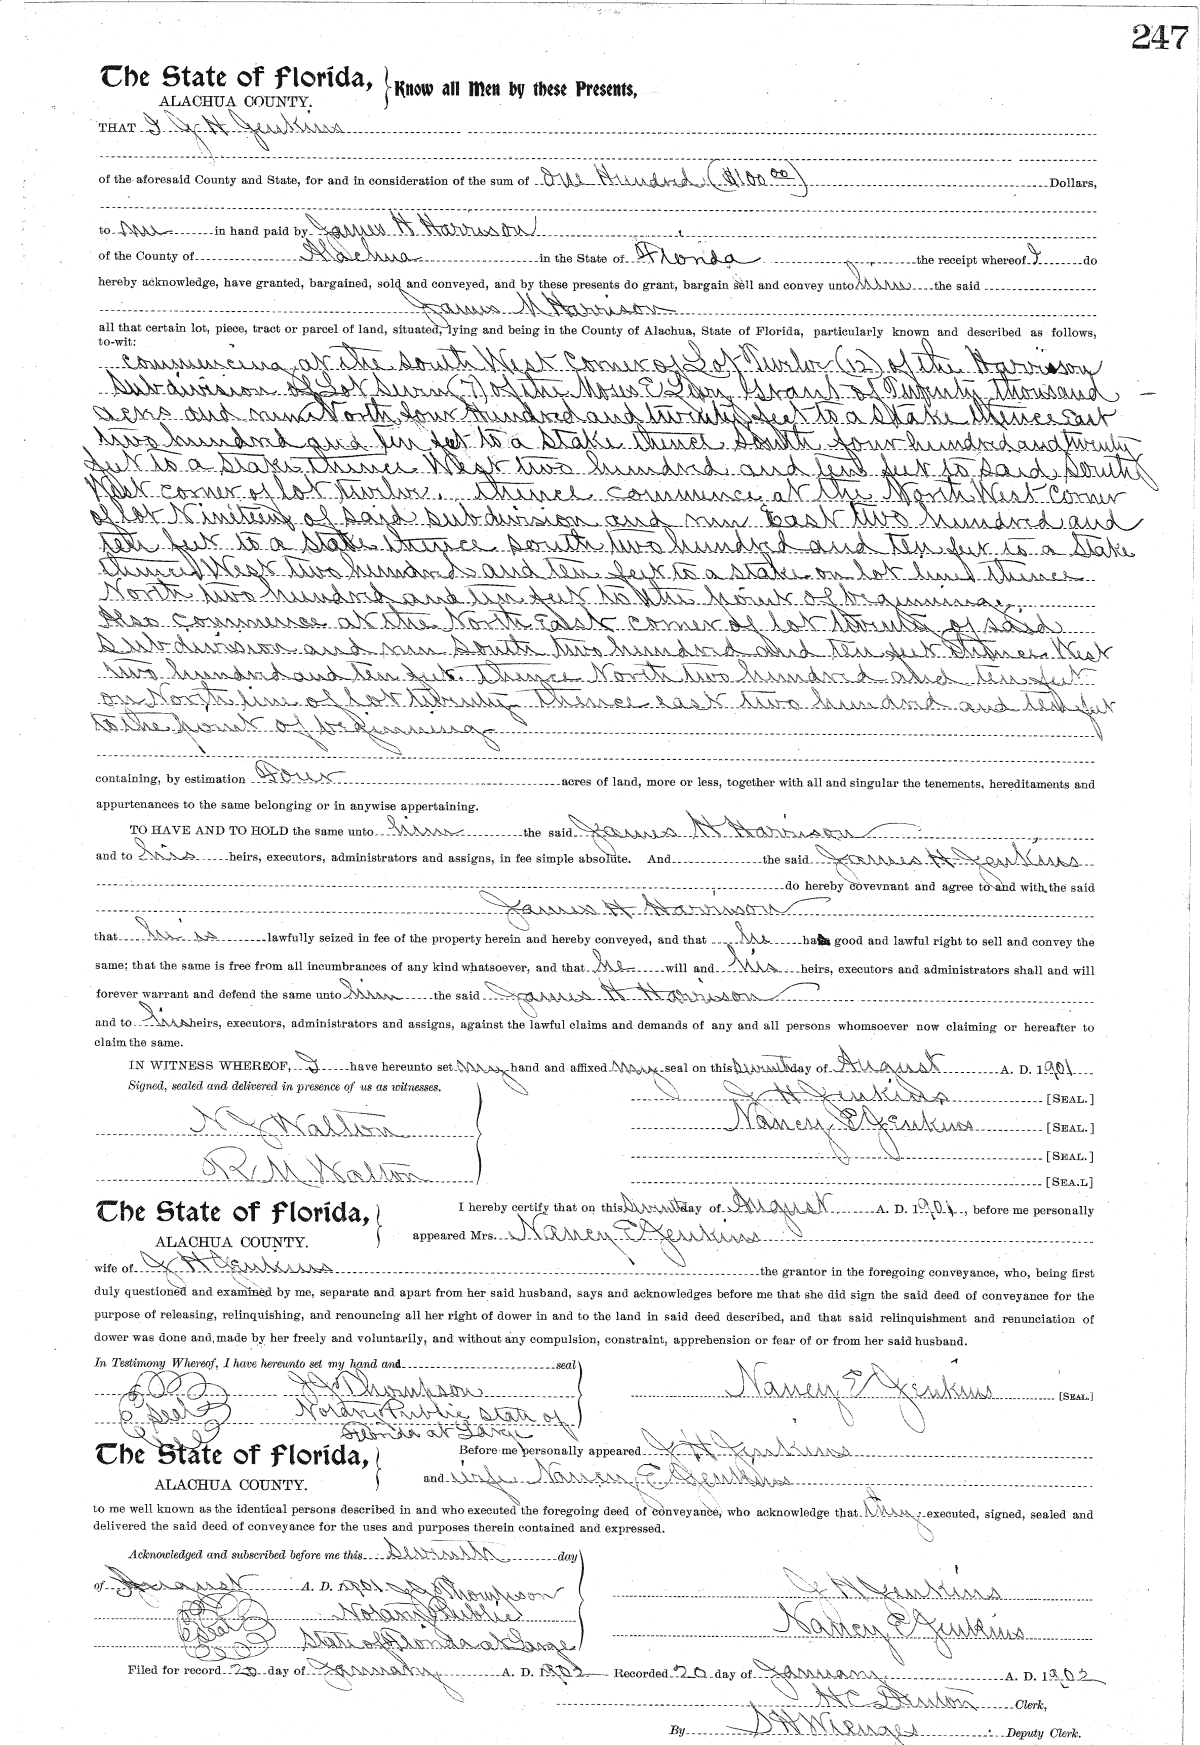 247
The State of Florida, Know all Men by these Presents,
ALACHUA COUNTY.
THAT I J H Jenkins
of the aforesaid County and State, for and in consideration of the sum of One Hundred ($100 00) Dollars,
to me in hand paid by James H Harrison
of the County of Alachua in the State of Florida the receipt whereof I do
hereby acknowledge, have granted, bargained, sold and conveyed, and by these presents do grant, bargain sell and convey unto him the said
James H Harrison
all that certain lot, piece, tract or parcel of land, situated, lying and being in the County of Alachua, State of Florida, particularly known and described as follows,
to-wit:
commencing at the South West Corner of Lot Twelve (12) of the Harrison
Subdivision of Lot Seven (7) of the Moses E Levy Grant of Twenty thousand
acres and run North four Hundred and twenty feet to a Stake thence East
two hundred and ten feet to a Stake thence South four hundred and twenty
feet to a Stake thence West two hundred and ten feet to said South
West corner of lot twelve. thence commence at the North West Corner
of lot Nineteen of said subdivision and run East two hundred and
ten feet to a Stake thence South two hundred and ten feet to a Stake
thence West two hundred and ten feet to a stake on lot line thence
North two hundred and ten feet to the point of beginning.
Also commence at the North East corner of lot twenty of said
Subdivision and run South two hundred and ten feet thence West
two hundred and ten feet. thence North two hundred and ten feet
on North line of lot twenty thence east two hundred and ten feet
to the point of beginning
containing, by estimation Four acres of land, more or less, together with all and singular the tenements, hereditaments and
appurtenances to the same belonging or in anywise appertaining.
TO HAVE AND TO HOLD the same unto him the said James H Harrison
and to his heirs, executors, administrators and assigns, in fee simple absolute. And the said James H Jenkins
do hereby covevnant and agree to and with the said
James H Harrison
that he is lawfully seized in fee of the property herein and hereby conveyed, and that he has good and lawful right to sell and convey the
same; that the same is free from all incumbrances of any kind whatsoever, and that he will and his heirs, executors and administrators shall and will
forever warrant and defend the same unto him the said James H Harrison
and to his heirs, executors, administrators and assigns, against the lawful claims and demands of any and all persons whomsoever now claiming or hereafter to
claim the same.
IN WITNESS WHEREOF, I have hereunto set my hand and affixed my seal on this Seventh day of August A. D. 1901
Signed, sealed and delivered in presence of us as witnesses.
J H Jenkins [SEAL.]
N J Walton Nancy E Jenkins [SEAL.]
[SEAL.]
R M Walton [SEA.L]
The State of Florida, I hereby certify that on this Seventh day of August A. D. 1901, before me personally
ALACHUA COUNTY. appeared Mrs. Nancy E Jenkins
wife of J H Jenkins the grantor in the foregoing conveyance, who, being first
duly questioned and examined by me, separate and apart from her said husband, says and acknowledges before me that she did sign the said deed of conveyance for the
purpose of releasing, relinquishing, and renouncing all her right of dower in and to the land in said deed described, and that said relinquishment and renunciation of
dower was done and made by her freely and voluntarily, and without any compulsion, constraint, apprehension or fear of or from her said husband.
In Testimony Whereof, I have hereunto set my hand and seal
J J Thompson Nancy E Jenkins [SEAL.]
Seal Notary Public State of
Florida at Large
The State of Florida, Before me personally appeared J H Jenkins
ALACHUA COUNTY. and wife Nancy E Jenkins
to me well known as the identical persons described in and who executed the foregoing deed of conveyance, who acknowledge that they executed, signed, sealed and
delivered the said deed of conveyance for the uses and purposes therein contained and expressed.
Acknowledged and subscribed before me this Seventh day
of August A. D. 1901 J J Thompson J H Jenkins
Notary Public
Seal Nancy E Jenkins
State of Florida at Large
Filed for record 20 day of January A. D. 1902 Recorded 20 day of January A. D. 1902
H C Denton Clerk,
By S H Wienges Deputy Clerk.